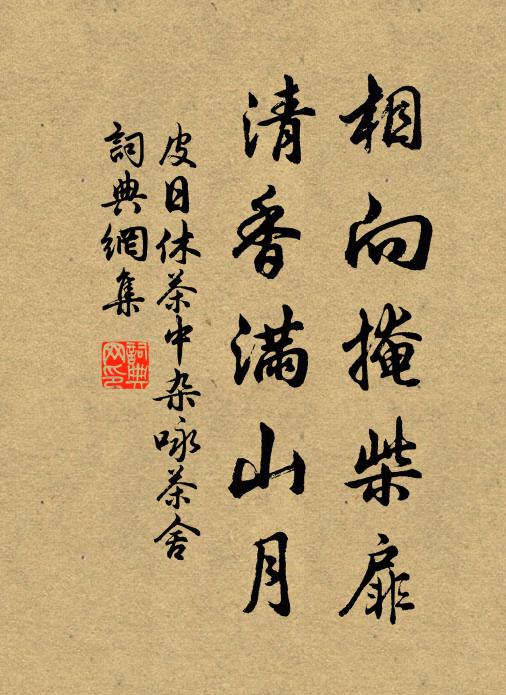 相向掩柴扉
清香滿山月
皮日休茶中杂咏茶舍
詞典網集
詞典
网印